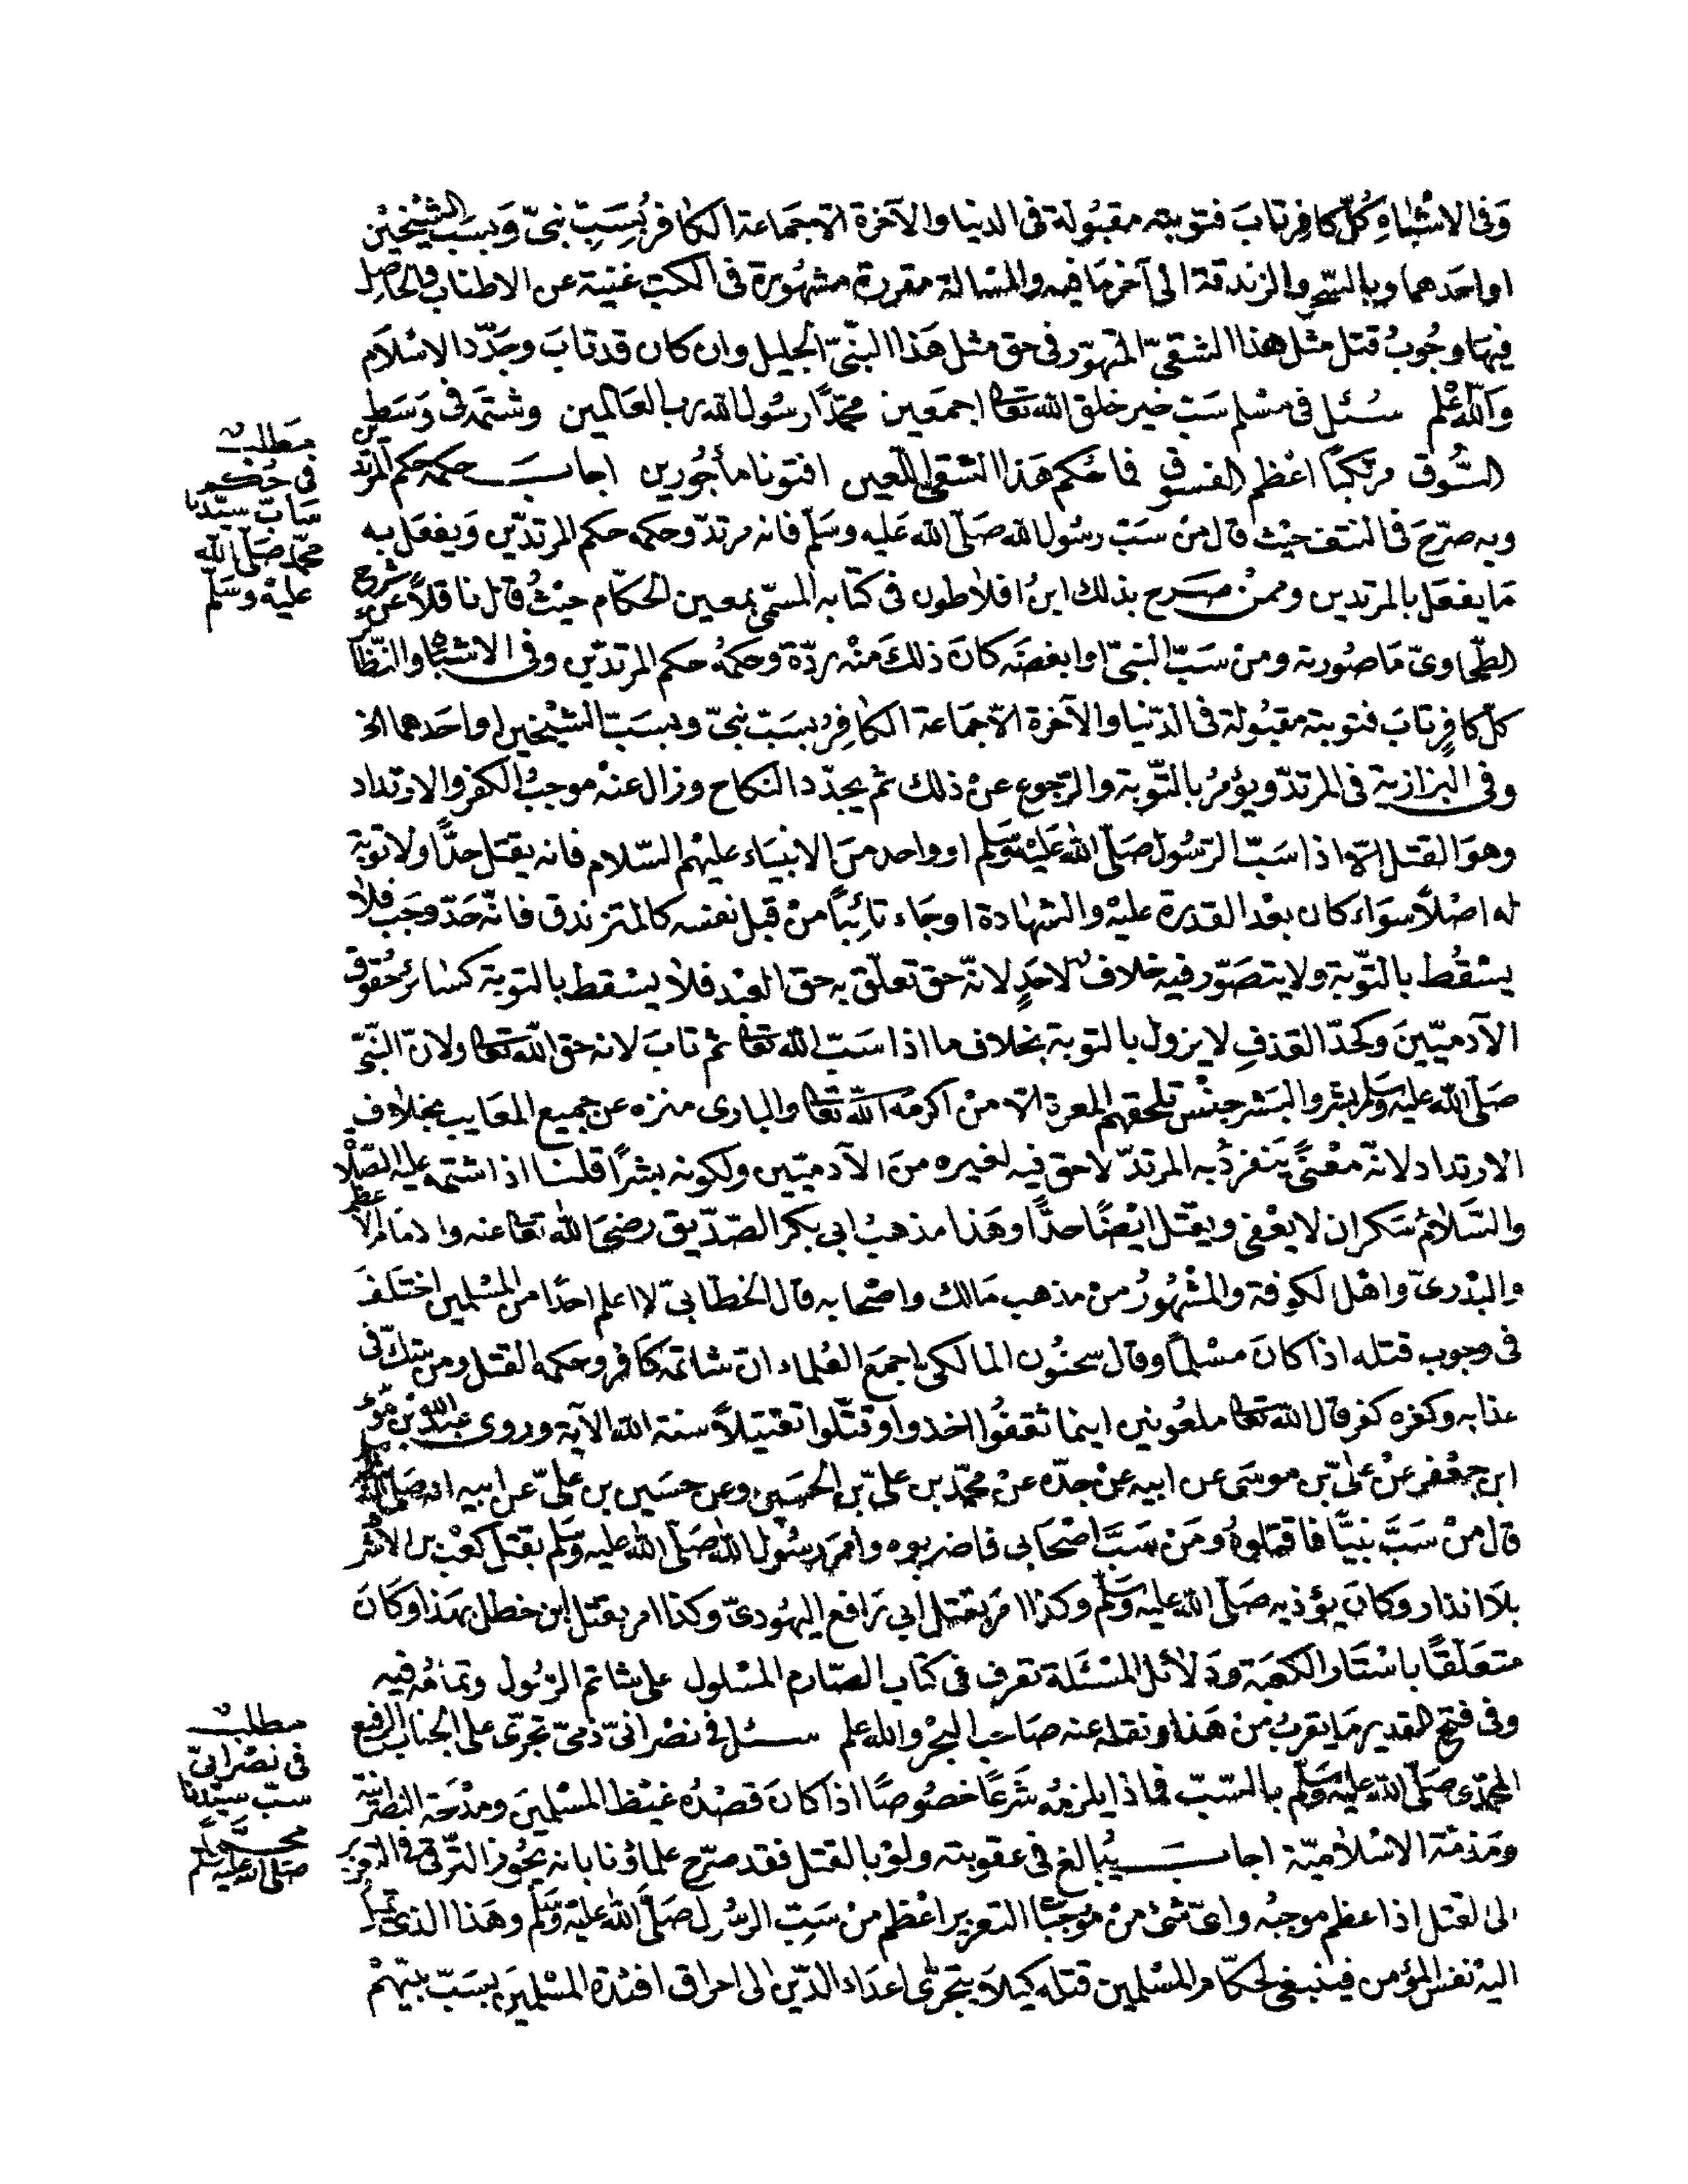 وَفى الاشْبَاهِ كُلّ كافِر تابَ فتوبته مقبُولة فى الدنيا والآخرة الا جَمَاعة الكافر بُسَبِّ نبىّ وَبسَبّ الشيْخَيْن
او احَدهما وبالسّحر والزندقة الى آخر مَا فيه والمسْالة مقررة مشهُورة فى الكتب غنية عن الاطناب والحاصِل
فيهَا وجُوبُ قتل مثْل هذا الشقىّ المتهوّر فى حق مثل هَذا النبىّ الجليل وان كان قد تابَ وجَدّد الاسْلاَم
وَاللّه اعْلم سُئل فى مسْلم سَبّ خير خلق الله تعالى اجمعَين محمّدًا رسُول الله رب العَالمين وشتمَه فى وَسَط
السُّوق مرتكبًا اعْظم الفسوق فما حُكم هَذا الشقى اللّعين افتونا مأجُورين اجابَ حكمه حكم المرتدّين
وبه صرّحَ فى النتف حيْث قال منْ سَبّ رسُول الله صَلّى الله عَليه وسَلّم فانه مرتدّ وحكمه حكم المرتدّين وَيفعَل به
مَا يفعَل بالمرتدين وممنْ صَرح بذلك ابنُ افلاطون فى كتابه المسمّى بمعين الحكّام حيْثُ قال ناقلاً عنْ شرح
الطّحاوىّ مَا صُورته ومن سَبّ النبىّ او ابغضَه كانَ ذلكَ منْه ردّة وحكمُه حكم المرتدّين وفى الاشبَاه والنّظَا
كلّ كافرٍ تابَ فتوبته مقبُولة فى الدّنيا والآخرة الاّ جَمَاعة الكافِرُ بسَبّ نبىّ وبسَبّ الشيْخين او احَدهما الخ
وفى البزازية فى المرتدّ ويؤمرُ بالتّوبة والرّجوع عنْ ذلك ثم يجدّد النكاح وزال عنْه موجبُ الكفر والارتداد
وهوَ القتل الاّ اذا سَبّ الرّسُول صَلّى الله عَليْه وَسَلم او واحد منَ الانبيَاء عليْهم السّلام فانه يقتل حدًّا ولا توبة
له اصْلاً سوَاء كان بعْد القدرة عليْه والشهَادة او جَاء تائبًا منْ قبل نفسه كالمتزندق فانّه حَدّ وجَب فلا
يسْقُط بالتّوبة ولا يتصَوّر فيه خلاف لاحَدٍ لانّه حق تعلّق به حق العَبْد فلا يسْقط بالتوبة كسَائر حُقوق
الآدميّينَ وكحَدّ القذفِ لا يزول بالتوبة بخلاف ما اذا سَبّ الله تعالى ثم تابَ لانه حق اللّه تعالى ولانّ النّبىّ
صَلّى الله عليه وسَلم بشر والبَشر جنْس تلحقهم المعرة الاّ منْ اكرمَه الله تعالى والبارى منزه عن جميع المعَايب بخلاف
الارتداد لانّه معْنىً يَنفردُ به المرتدّ لا حق فيه لغيره منَ الآدميّين ولكونه بشرًا قلنا اذا شتمه عليه الصّلاة
والسَّلامُ سَكران لا يعْفى ويقتل ايْضًا حدًّا وهَذا مذهبُ ابى بكر الصّدّيق رضىَ الله تعالى عنه والامَام الاعظم
والبدْرىّ واهْل الكوفة والمشْهُورُ منْ مذهب مَالك واصْحابه قال الخطابىّ لا اعلم احَدًا من المسْلمين اختَلفَ
فى وجوب قتله اذا كانَ مسْلمًا وقال سحنُون المالكىّ اجمَع العُلماء انّ شاتمَه كافر وحكمه القتل ومن شكّ فى
عذابه وكفره كفر قال الله تعالى ملعُونين اينما ثقفُوا اخدوا وقتّلوا تقتيلاً سنة الله الآية وروى عبد الله بْن مُوسَى
ابن جعْفر عنْ علىّ بن موسَى عن ابيه عنْ جدّه عنْ محمّد بن علىّ بن الحسَين وعن حسَين بن علىّ عن ابيه انه صَلى الله عليه وسلم
قال منْ سَبَّ نبيًّا فاقتلوهُ ومَنْ سَبَّ اصْحَابى فاضربوه وامرَ رسُول الله صَلّى الله عليه وسَلم بقتل كعْب بن الاشرف
بلاَ انذار وكانَ يؤذيه صَلّى الله عليْه وَسَلّم وكذا امَر بقتل ابى رَافع اليهُودىّ وكذا امر بقتل ابن خطل بهَذا وَكَانَ
متعَلقًا باسْتَار الكعبَة وَدَلائل المسْئَلة تعرف فى كتاب الصّارم المسْلول على شاتم الرّسُول وتمامُه فيه
وفى فتح القدير مَا يقربُ منْ هَذا ونقله عنه صَاحب البحْر والله اعلم سئل فى نصْرانىّ ذمىّ تجرّى على الجناب الرفيع
المحمّدى صَلّى اللّه عليْه وسَلّم بالسّبّ فماذا يلزمُه شَرعًا خصُوصًا اذا كانَ قصْدُه غيْظ المسْلمينَ ومدْحَة النصْرَانيّة
ومَذمّة الاسْلاميّة اجابَ يُبالغ فى عقوبته ولوْ بالقتل فقد صرّح علماؤنا بانه يَجُوز التّرقى فى التعزير
الى القتل اذا عظم موجبُه واىّ شئ منْ مُوجبَات التعزير اعْظم منْ سَبّ الرسُول صَلّى الله عليْه وَسَلّم وهَذا الذى تميل
اليْه نفس المؤمن فينبغى لحكّام المسْلمين قتله كيلاَ يتجرّى اعدَاء الدّين الى احراق افئدة المسْلمينَ بسَبّ نبيّهمْ
مَطلب
فى حُكم
سَابّ سيّدنا
محمّد صَلّى الله
عليْه وسَلّم
مطلب
فى نصْرانىّ
سبّ سيّدنا
محمّدًا
صَلى الله عليْه وسلم